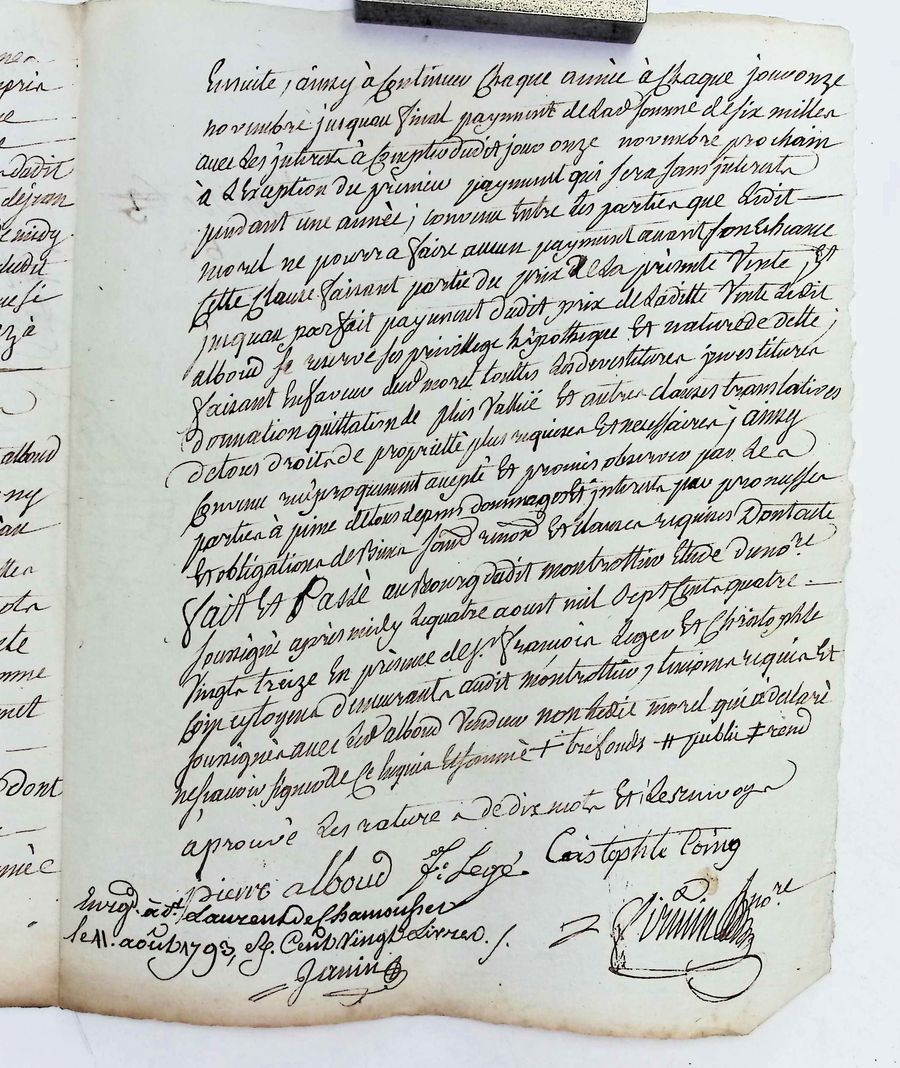 nes
apris
dudit
dejean
emidy
dudit
que si
ez à
alboud
ny
sete
omme
met
Dont
mièe
Ensuite ; ainsy à Continuer Chaque année à Chaque jour onze
novembre jusquau final payment de lad. somme de six milles
avec les jnterets à Compter dudit jour onze novembre prochain
à l'Exeption du premier payment qui sera sans jnterets
pendant une année ; convenu Entre les parties que Ledit
morel ne pourra faire aucun payment avant son Echeance
Cette Clause faisant partie du prix de La présente Vente ; Et
jusquau parfait payment dudit prix de Laditte Vente Ledit
alboud se reserve ses privillege hipothique Et nature de dette ;
faisant En faveur dud. morel touttes Les devestitures jnvestitures
donnation quittation de plus Vallüe Et autres clauses translatives
de tous droits de proprietté plus requises Et necessaires ; ainsy
Convenu réciproquement accepté Et promis observer par Les
parties à peine de tous depens dommages Et jnterets par promesses
Et obligations de Biens soumd. renond. Et clauses requises Dont acte
Fait Et Passé au Bourg dudit montrottier Etude du no.re
soussigné après midy Le quatre aoust mil Sept Cents quatre
Vingts treize En présence de S.r François Leger Et Christophle
Coing citoyens demeurants audit montrottier, temoins requis Et
soussignés avec Led. alboud Vendeur non Ledit morel qui a déclaré
ne scavoir signer de Ce Enquis Et sommé + trefonds # public ‡ rend
aprouvé Les ratures de dix mots Et Les renvoys
pierre alboud F.s Legé Cristophle Coing
Enregd. à S.t Laurent de Chamousset
le 11. août 1793, R. Cent Vingt Livres.
Janin
no.re